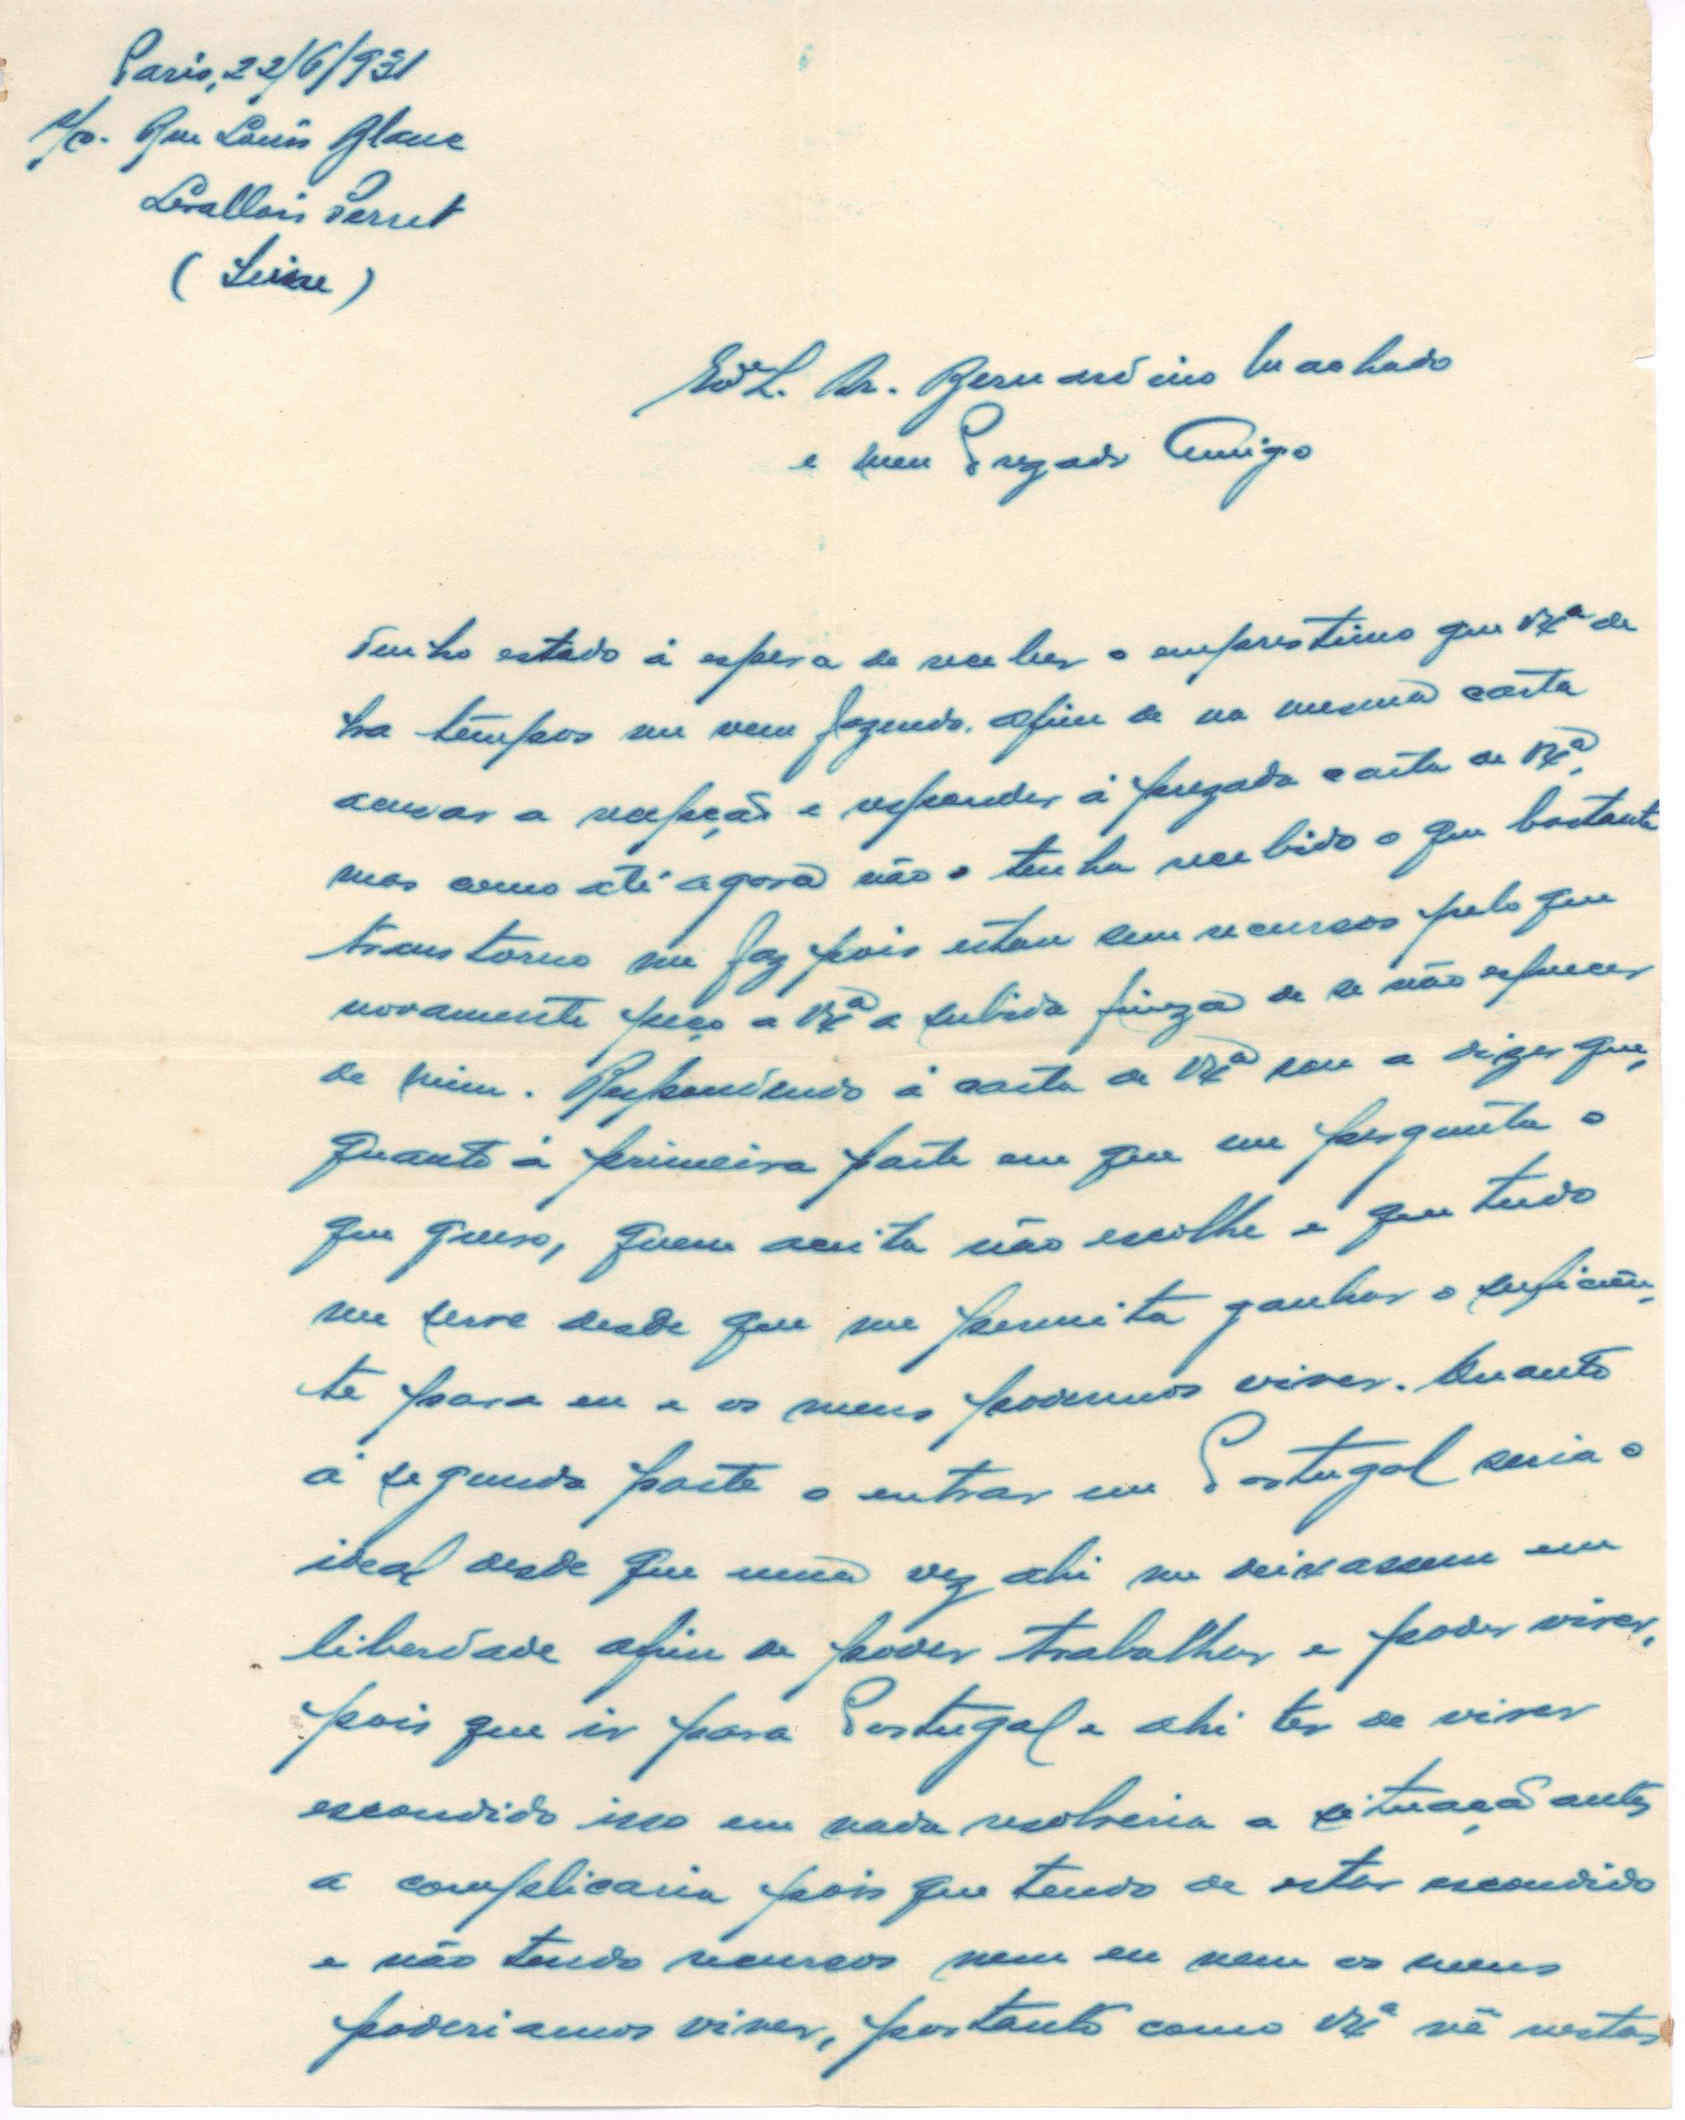 Paris, 22/6/931
Rue Louis Blanc
Levallois Perret
(Seine)
Dr. Bernardino Machado
e meu Prezado Amigo
Tenho estado á espera de receber o emprestimo que VExª de
ha têmpos me vem fazendo, afim de na mesma carta
acusar a recepção e responder á prezada carta de VExª,
mas como até agora não o tenha recebido o que bastante
transtorno me faz pois estou sem recursos pelo que
novamente peço a VExª a subida fineza de se não esquecer
de mim. Respondendo á carta de VExª sou a dizer que,
quanto á primeira parte em que me pergunta o
que quero, quem aceita não escolhe e que tudo
me serve desde que me permita ganhar o suficiên-
te para eu e os meus podermos viver. Quanto
á segunda parte o entrar em Portugal seria o
ideal desde que uma vez ahi me deixassem em
liberdade afim de poder trabalhar e poder viver,
pois que ir para Portugal e ahi ter de viver
escondido isso em nada resolveria a situação antes
a complicaria pois que tendo de estar escondido
e não tendo recursos nem eu nem os meus
poderiamos viver, portanto como VExª vê nestas